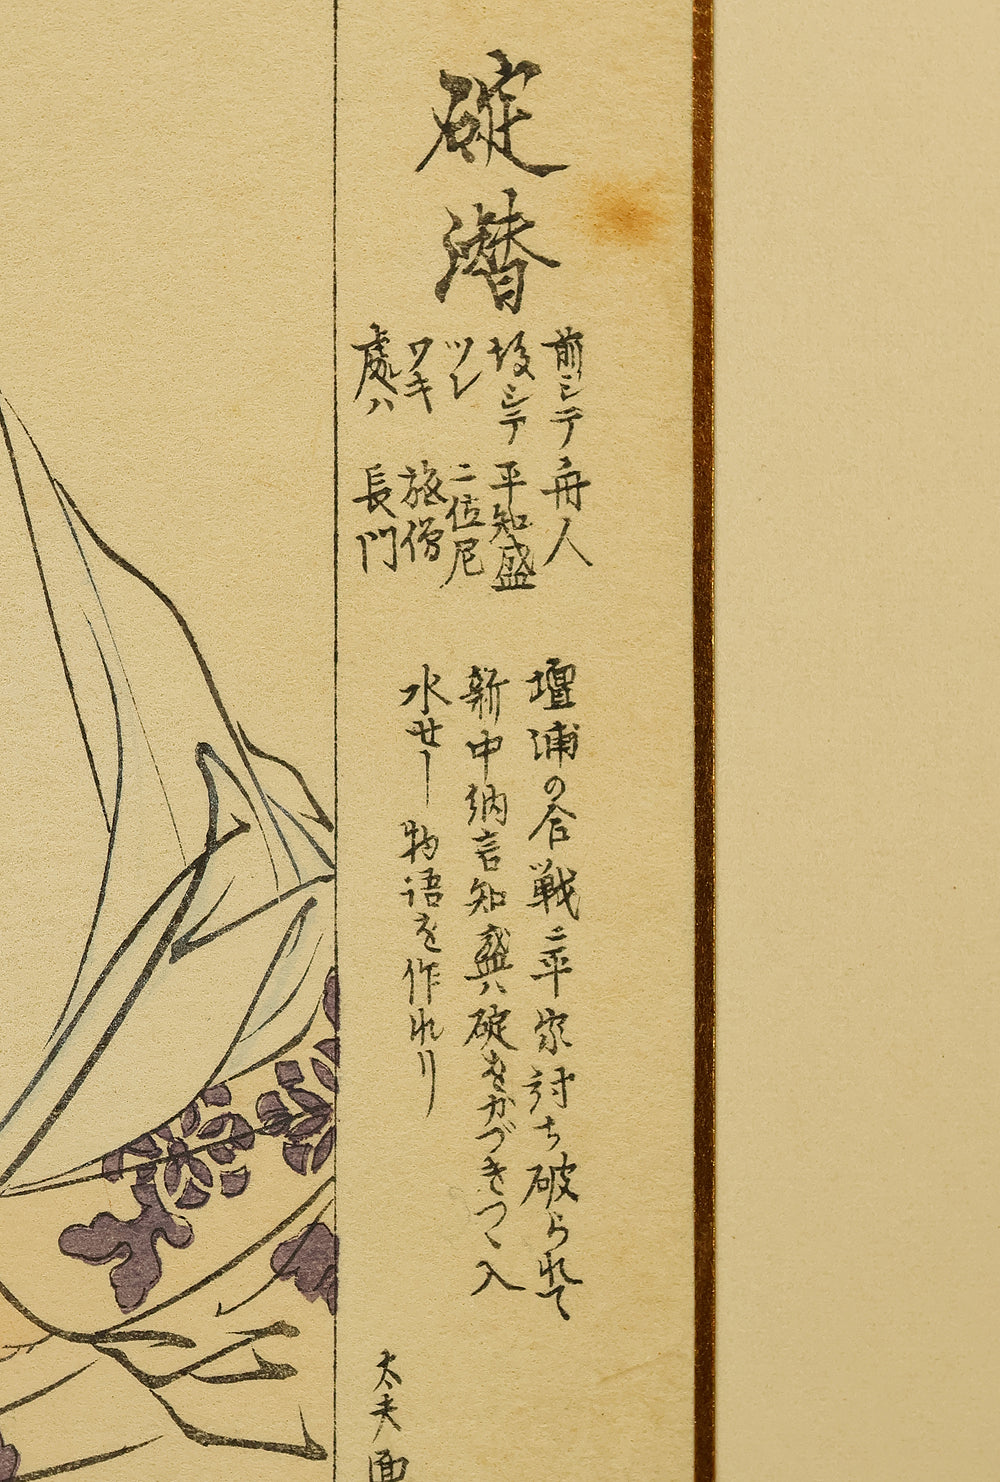 碇潜
前シテ 舟人
後シテ 平知盛
ツレ 二位尼
ワキ 旅僧
處ハ 長門
壇浦の合戦ニ平家討ち破られて
新中納言知盛ハ碇をかづきつゝ入
水せし物語を作れり
太夫 画